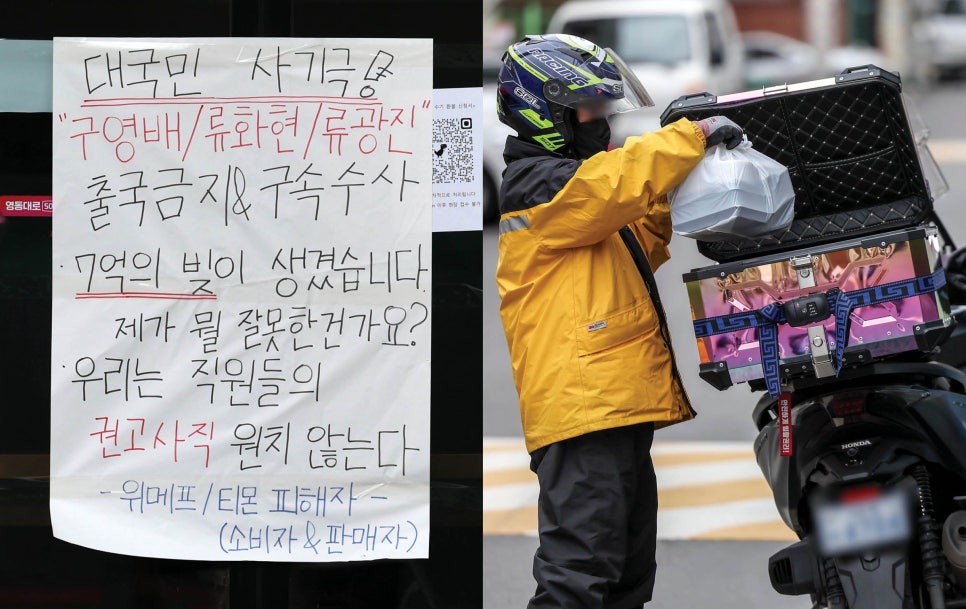 대국민 사기극
"구영배/류화현/류광진"
출국금지&구속수사
· 7억의 빚이 생겼습니다.
제가 뭘 잘못한건가요?
· 우리는 직원들의
권고사직 원치 않는다
- 위메프/티몬 피해자 -
(소비자&판매자)
수기 환불 신청서
영동대로 50
RACING
HONDA